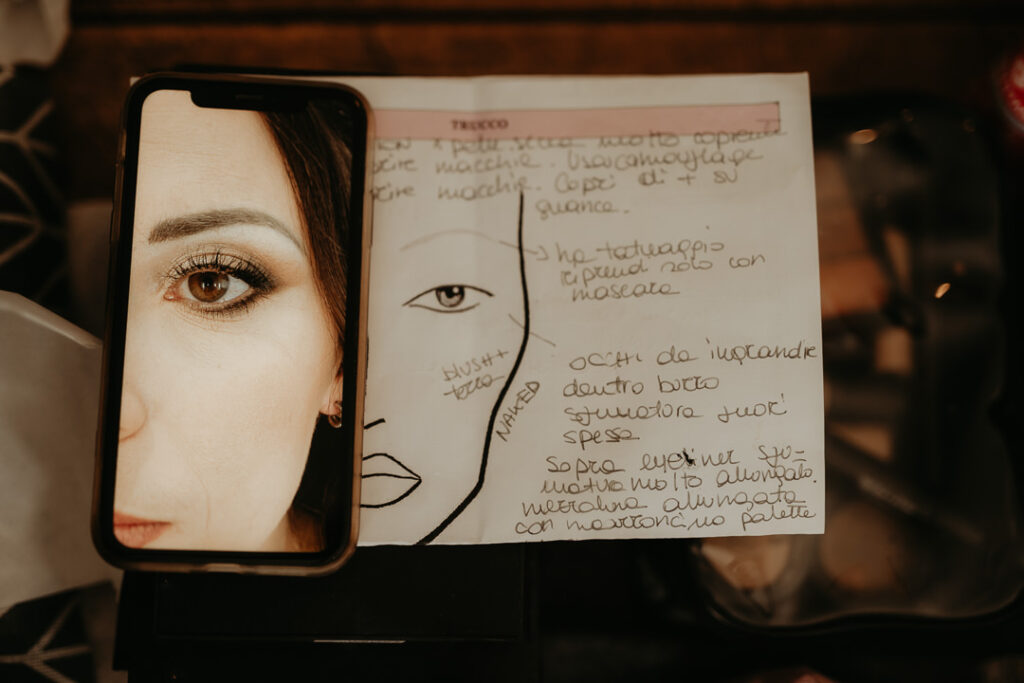 TRUCCO
x pelle secca molto coprente
macchie. Usa camouflage
macchie. Copri di + su
guance.
ha tatuaggio
riprendi solo con
mascara
OCCHI da ingrandire
dentro burro
sfumatura fuori
spessa
Sopra eyeliner sfu-
matura molto allungata.
mezzaluna allungata
con marroncino palette
blush +
terra
NAKED